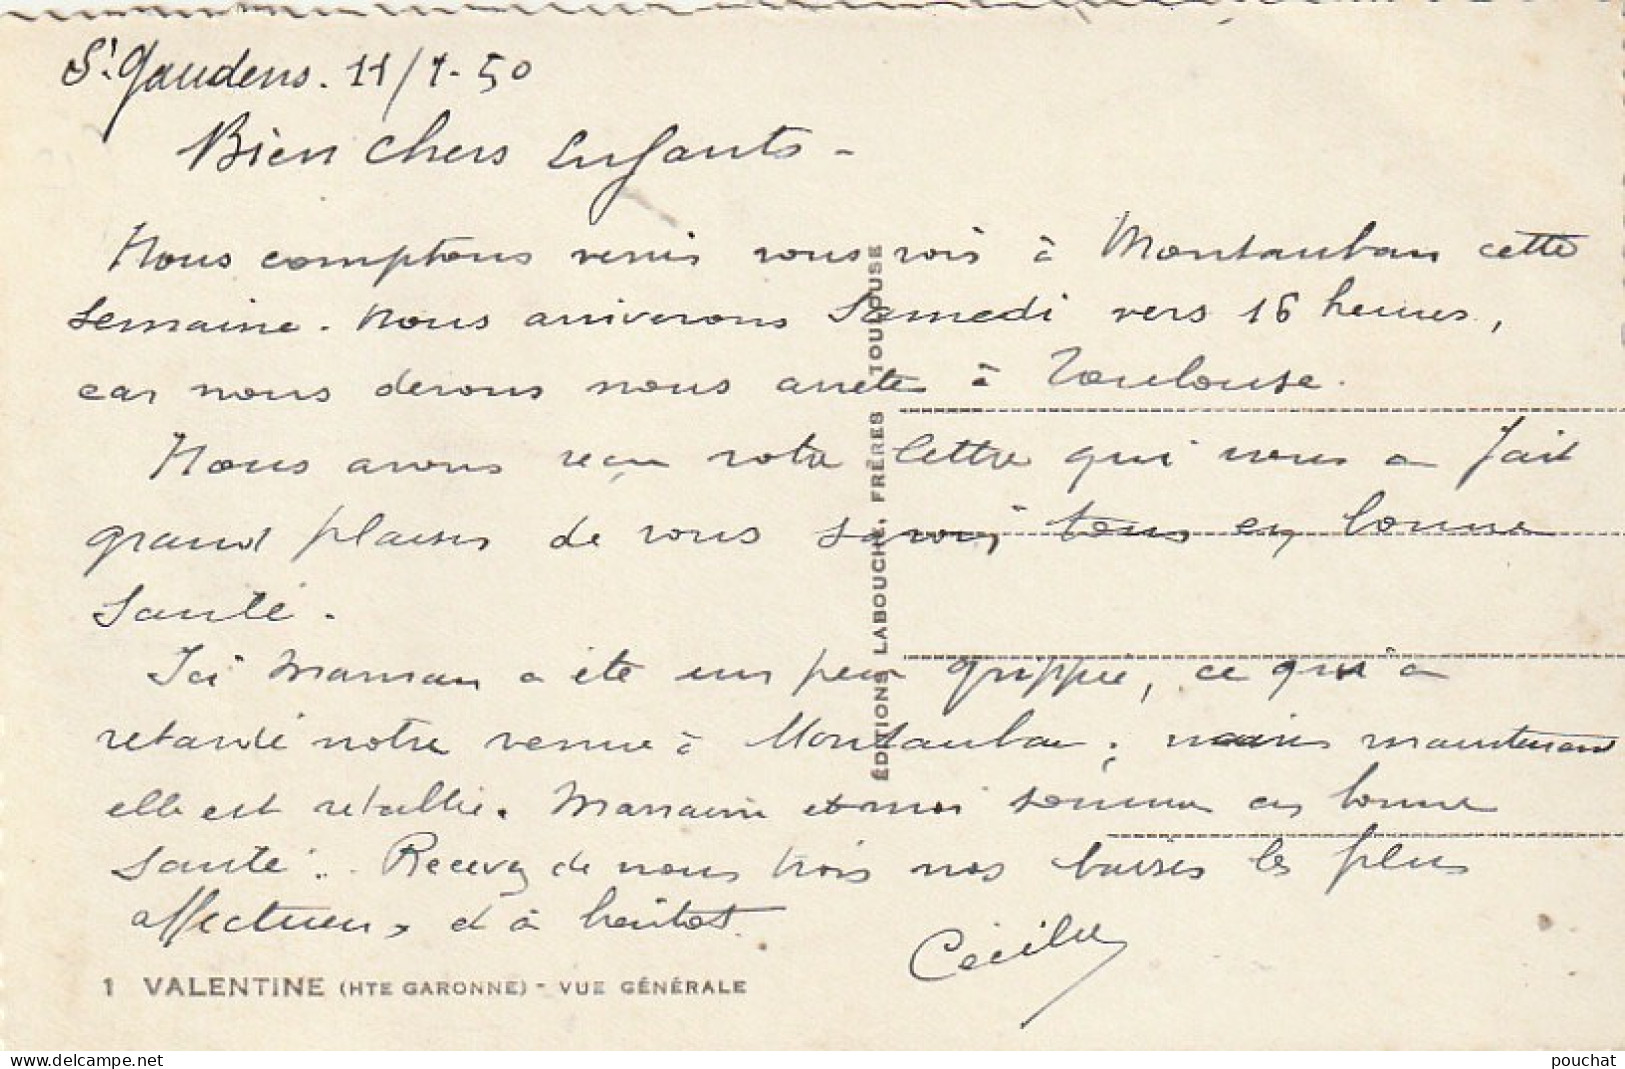 St Gaudens. 11/1-50
Bien chers Enfants -
Nous comptons venir vous voir à Montauban cette
semaine. Nous arriverons Samedi vers 16 heures,
car nous devons nous arrêter à Toulouse.
Nous avons reçu votre lettre qui nous a fait
grand plaisir de vous savoir tous en bonne
santé.
Ici Maman a été un peu grippée, ce qui a
retardé notre venue à Montauban, mais maintenant
elle est rétablie. Marraine et moi sommes en bonne
santé. Recevez de nous trois nos baisers les plus
affectueux, et à bientôt.
Cécile
1 VALENTINE (HTE GARONNE) - VUE GÉNÉRALE
ÉDITIONS LABOUCHE, FRÈRES TOULOUSE
www.delcampe.net
pouchat